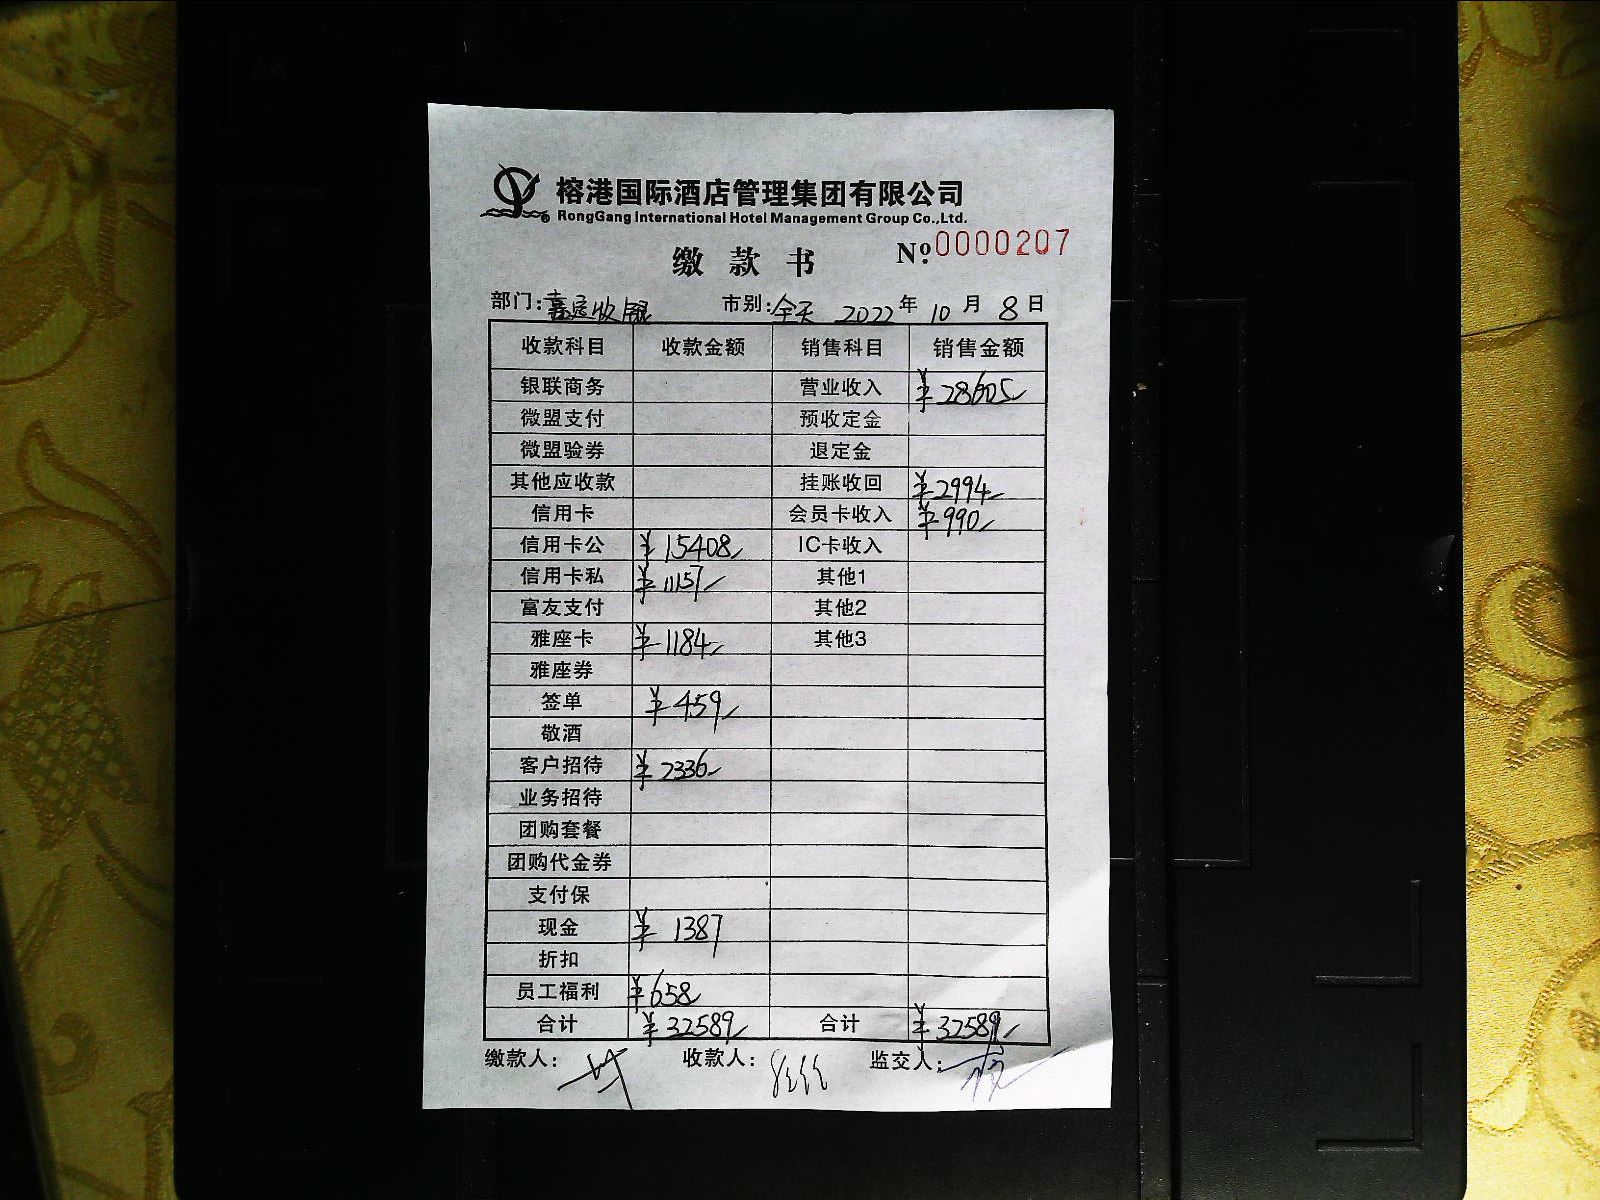 榕港国际酒店管理集团有限公司
RongGang International Hotel Management Group Co.,Ltd.
缴款书 №:0000207
部门:嘉宾收银 市别:全天 2022年10月8日
收款科目 收款金额 销售科目 销售金额
银联商务 营业收入 ¥28605
微盟支付 预收定金
微盟验券 退定金
其他应收款 挂账收回 ¥2994
信用卡 会员卡收入 ¥990
信用卡公 ¥15408 IC卡收入
信用卡私 ¥11157 其他1
富友支付 其他2
雅座卡 ¥1184 其他3
雅座券
签单 ¥459
敬酒
客户招待 ¥2336
业务招待
团购套餐
团购代金券
支付保
现金 ¥1387
折扣
员工福利 ¥658
合计 ¥32589 合计 ¥32589
缴款人: 收款人: 监交人: